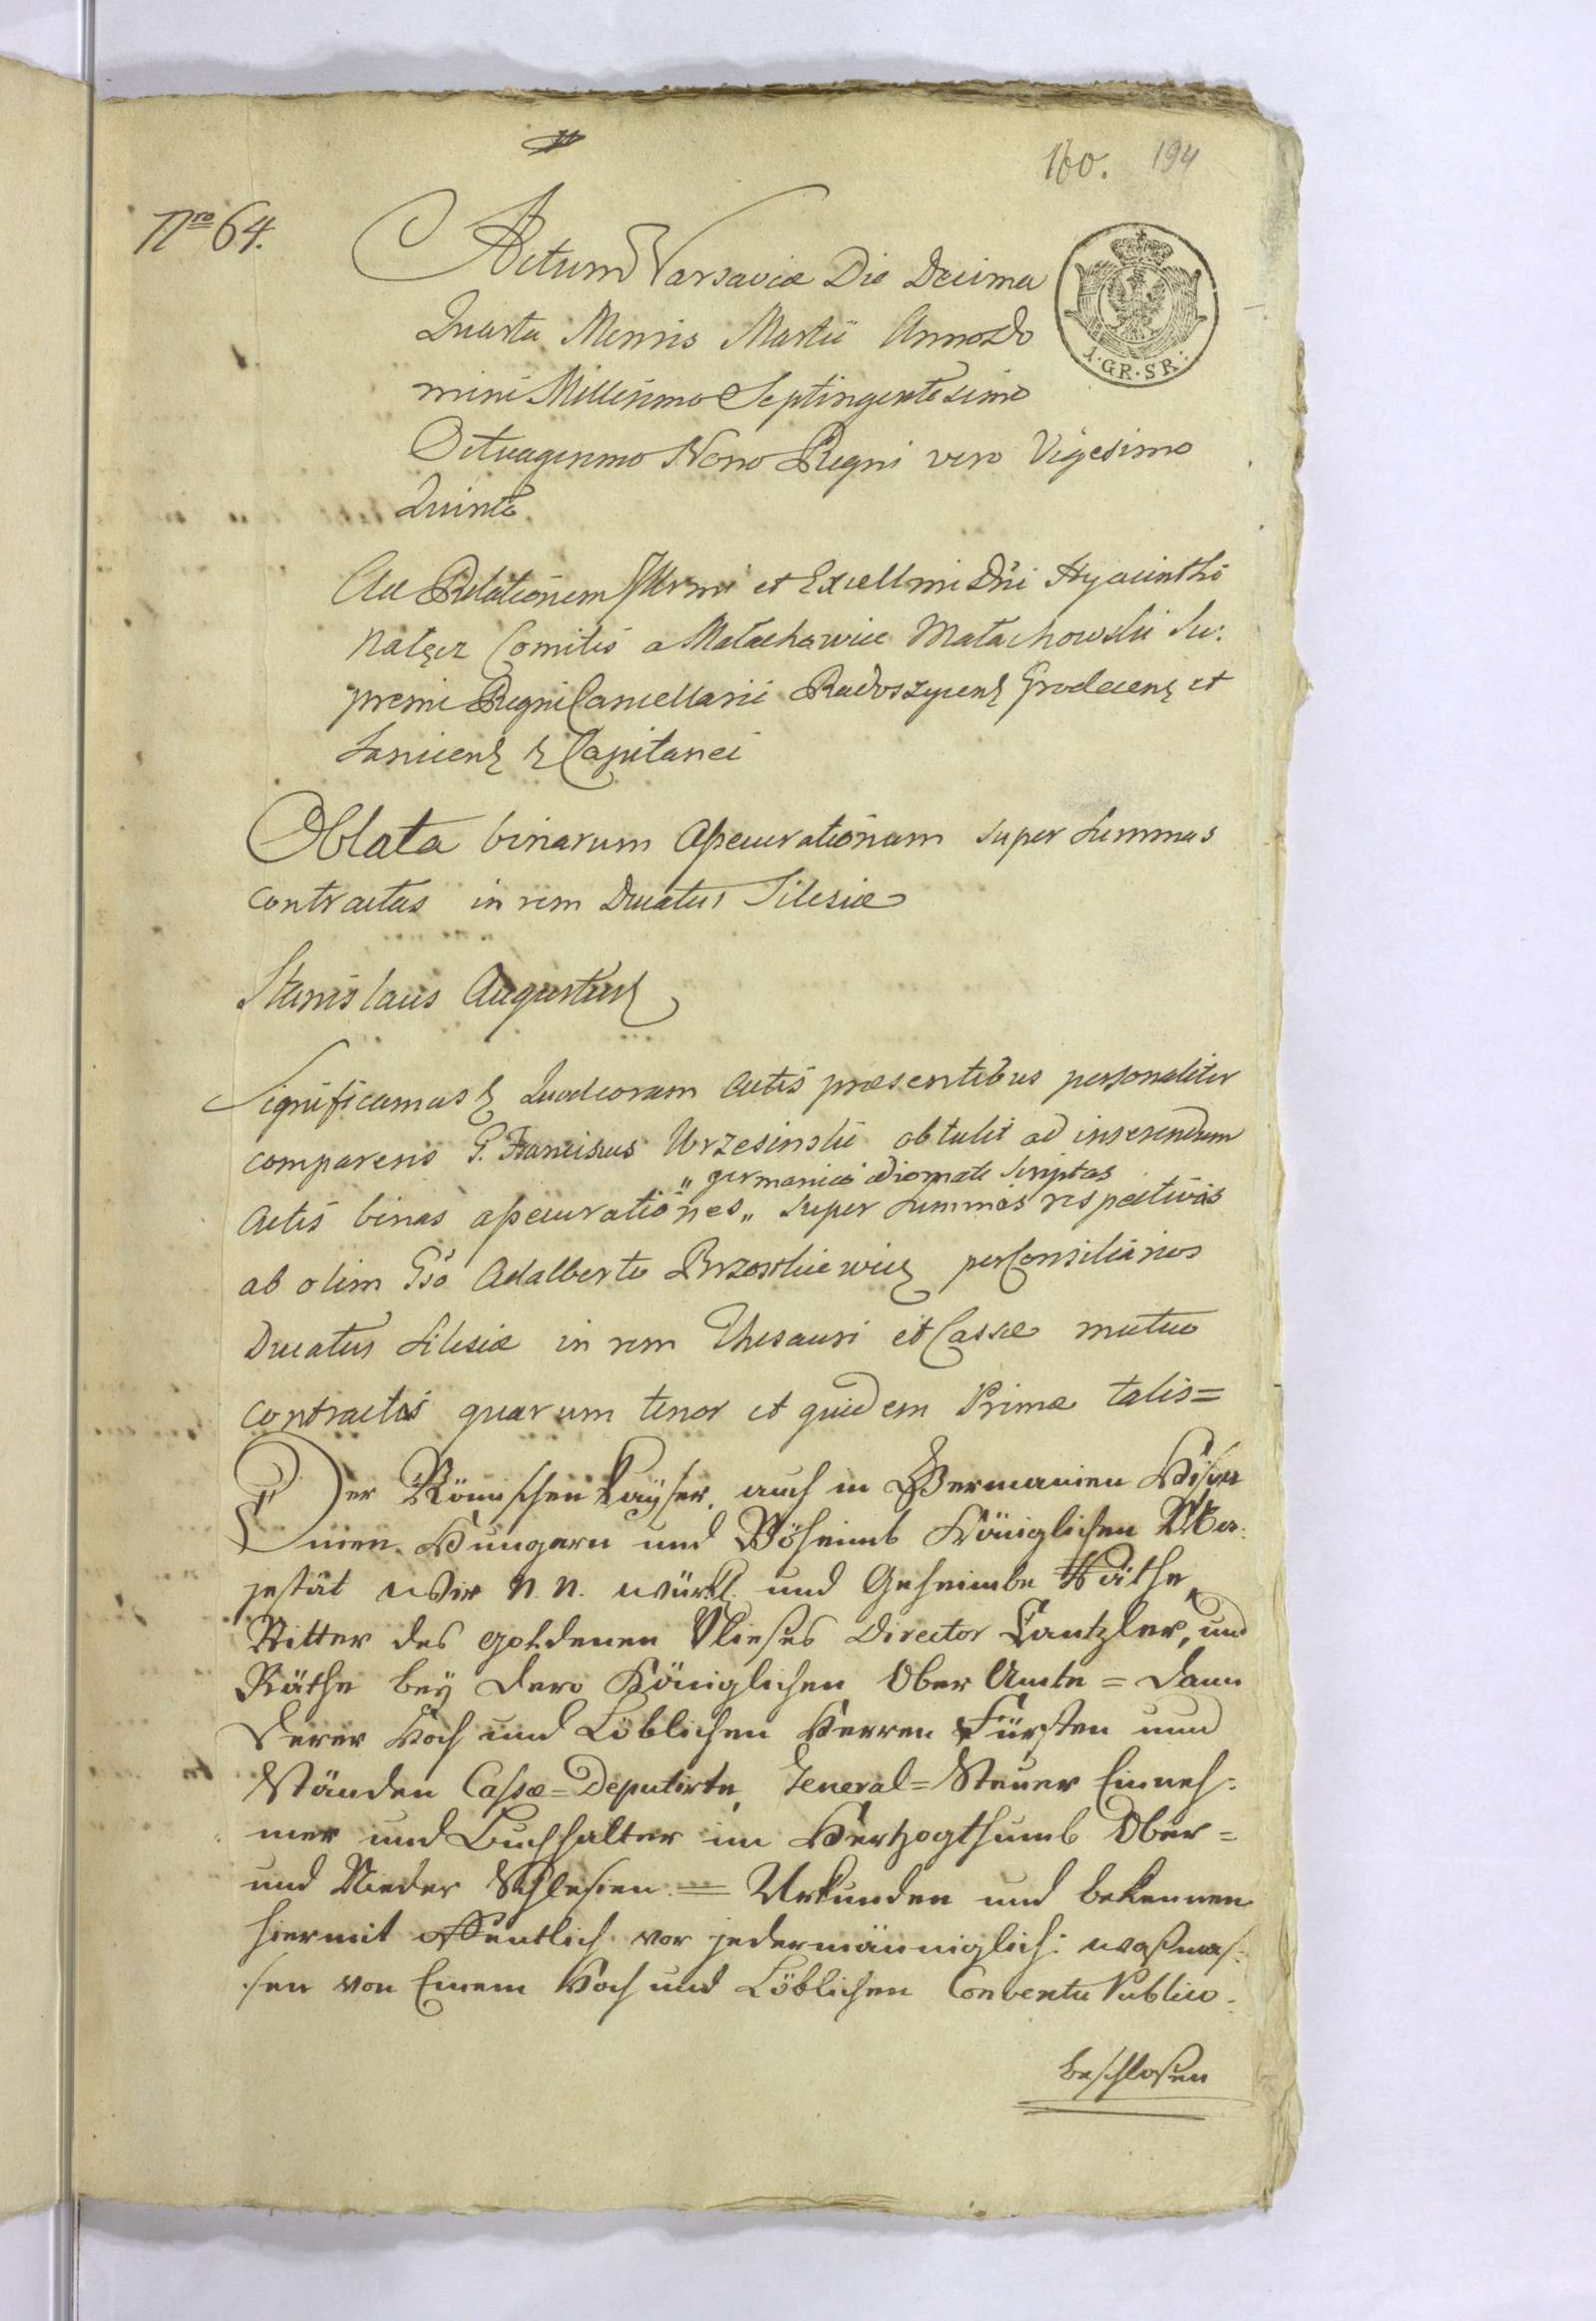 160. 194
Nro 64.
Actum Varsaviæ Die Decima
Quarta Mensis Martii Anno Do
mini Millesimo Septingentesimo
Octuagesimo Nono Regni vero Vigesimo
Quinto
Ad Relationem Illrmi et Excellmi Dni Hyacinthi
Nałęcz Comitis a Małachowice Małachowski Su:
premi Regni Cancellarii Radoszycen Grodecen et
Capitanei
Oblata binarum Assecurationum super Summas
contractas in rem Ducatus Silesiæ
1. GR. SR.
Stanislaus Augustus
Significamus Quod coram Actis præsentibus personaliter
comparens G. Franciscus Wrzesinski obtulit ad inserendum
„ germanico idiomate scriptas
Actis binas assecurationes „ super Summas respectivas
ab olim Gso Adalberto Brzostkiewicz per Consiliarios
Ducatus Silesiæ in rem Thesauri et Cassæ mutuo
contractas quarum tenor et quidem Primæ talis=
Der Römischen Kayser, auch in Germanien Hispa
nien Hungarn und Böheimb Königlichen Ma:
jestät Wir N. N. würkl. und Geheimbe Räthe,
Ritter des goldenen Vließes Director Cantzler, und
Räthe bey dero Königlichen Ober Amte = dann
derer Hoch und Löblichen Herren Fürsten und
Ständen Cassæ=Deputirte, General=Steuer Einneh:
mer und Buchhalter im Hertzogthumb Ober=
und Nieder Schlesien = Urkunden und bekennen
hiermit öffentlich vor jedermänniglich: waßmas:
sen von Einem Hoch und Löblichen Conventu Publico:
beschloßen